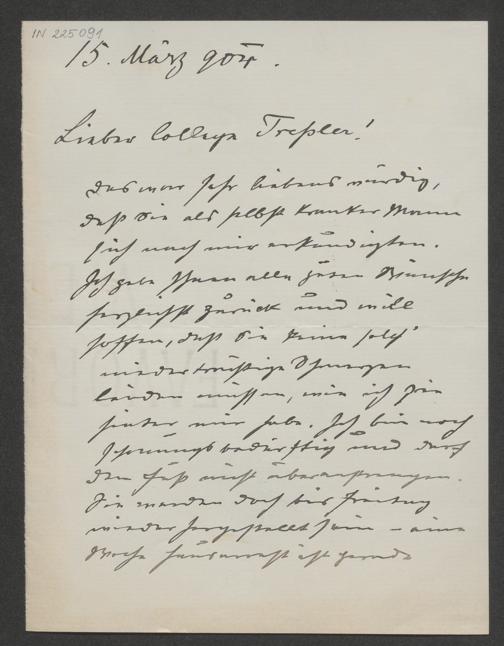 IN 225091
15. März 904.
Lieber College Treßler!
Das war sehr liebenswürdig,
daß Sie als selbst kranker Mann
sich nach mir erkundigten.
Ich gebe Ihnen alle guten Wünsche
herzlichst zurück und will
hoffen, daß Sie keine solch'
niederträchtige Schmerzen
leiden müssen, wie ich sie
hinter mir habe. Ich bin noch
schonungsbedürftig und darf
den Fuß nicht überanstrengen.
Sie werden doch bis Freitag
wieder hergestellt sein – eine
Woche Hausarrest ist gerade